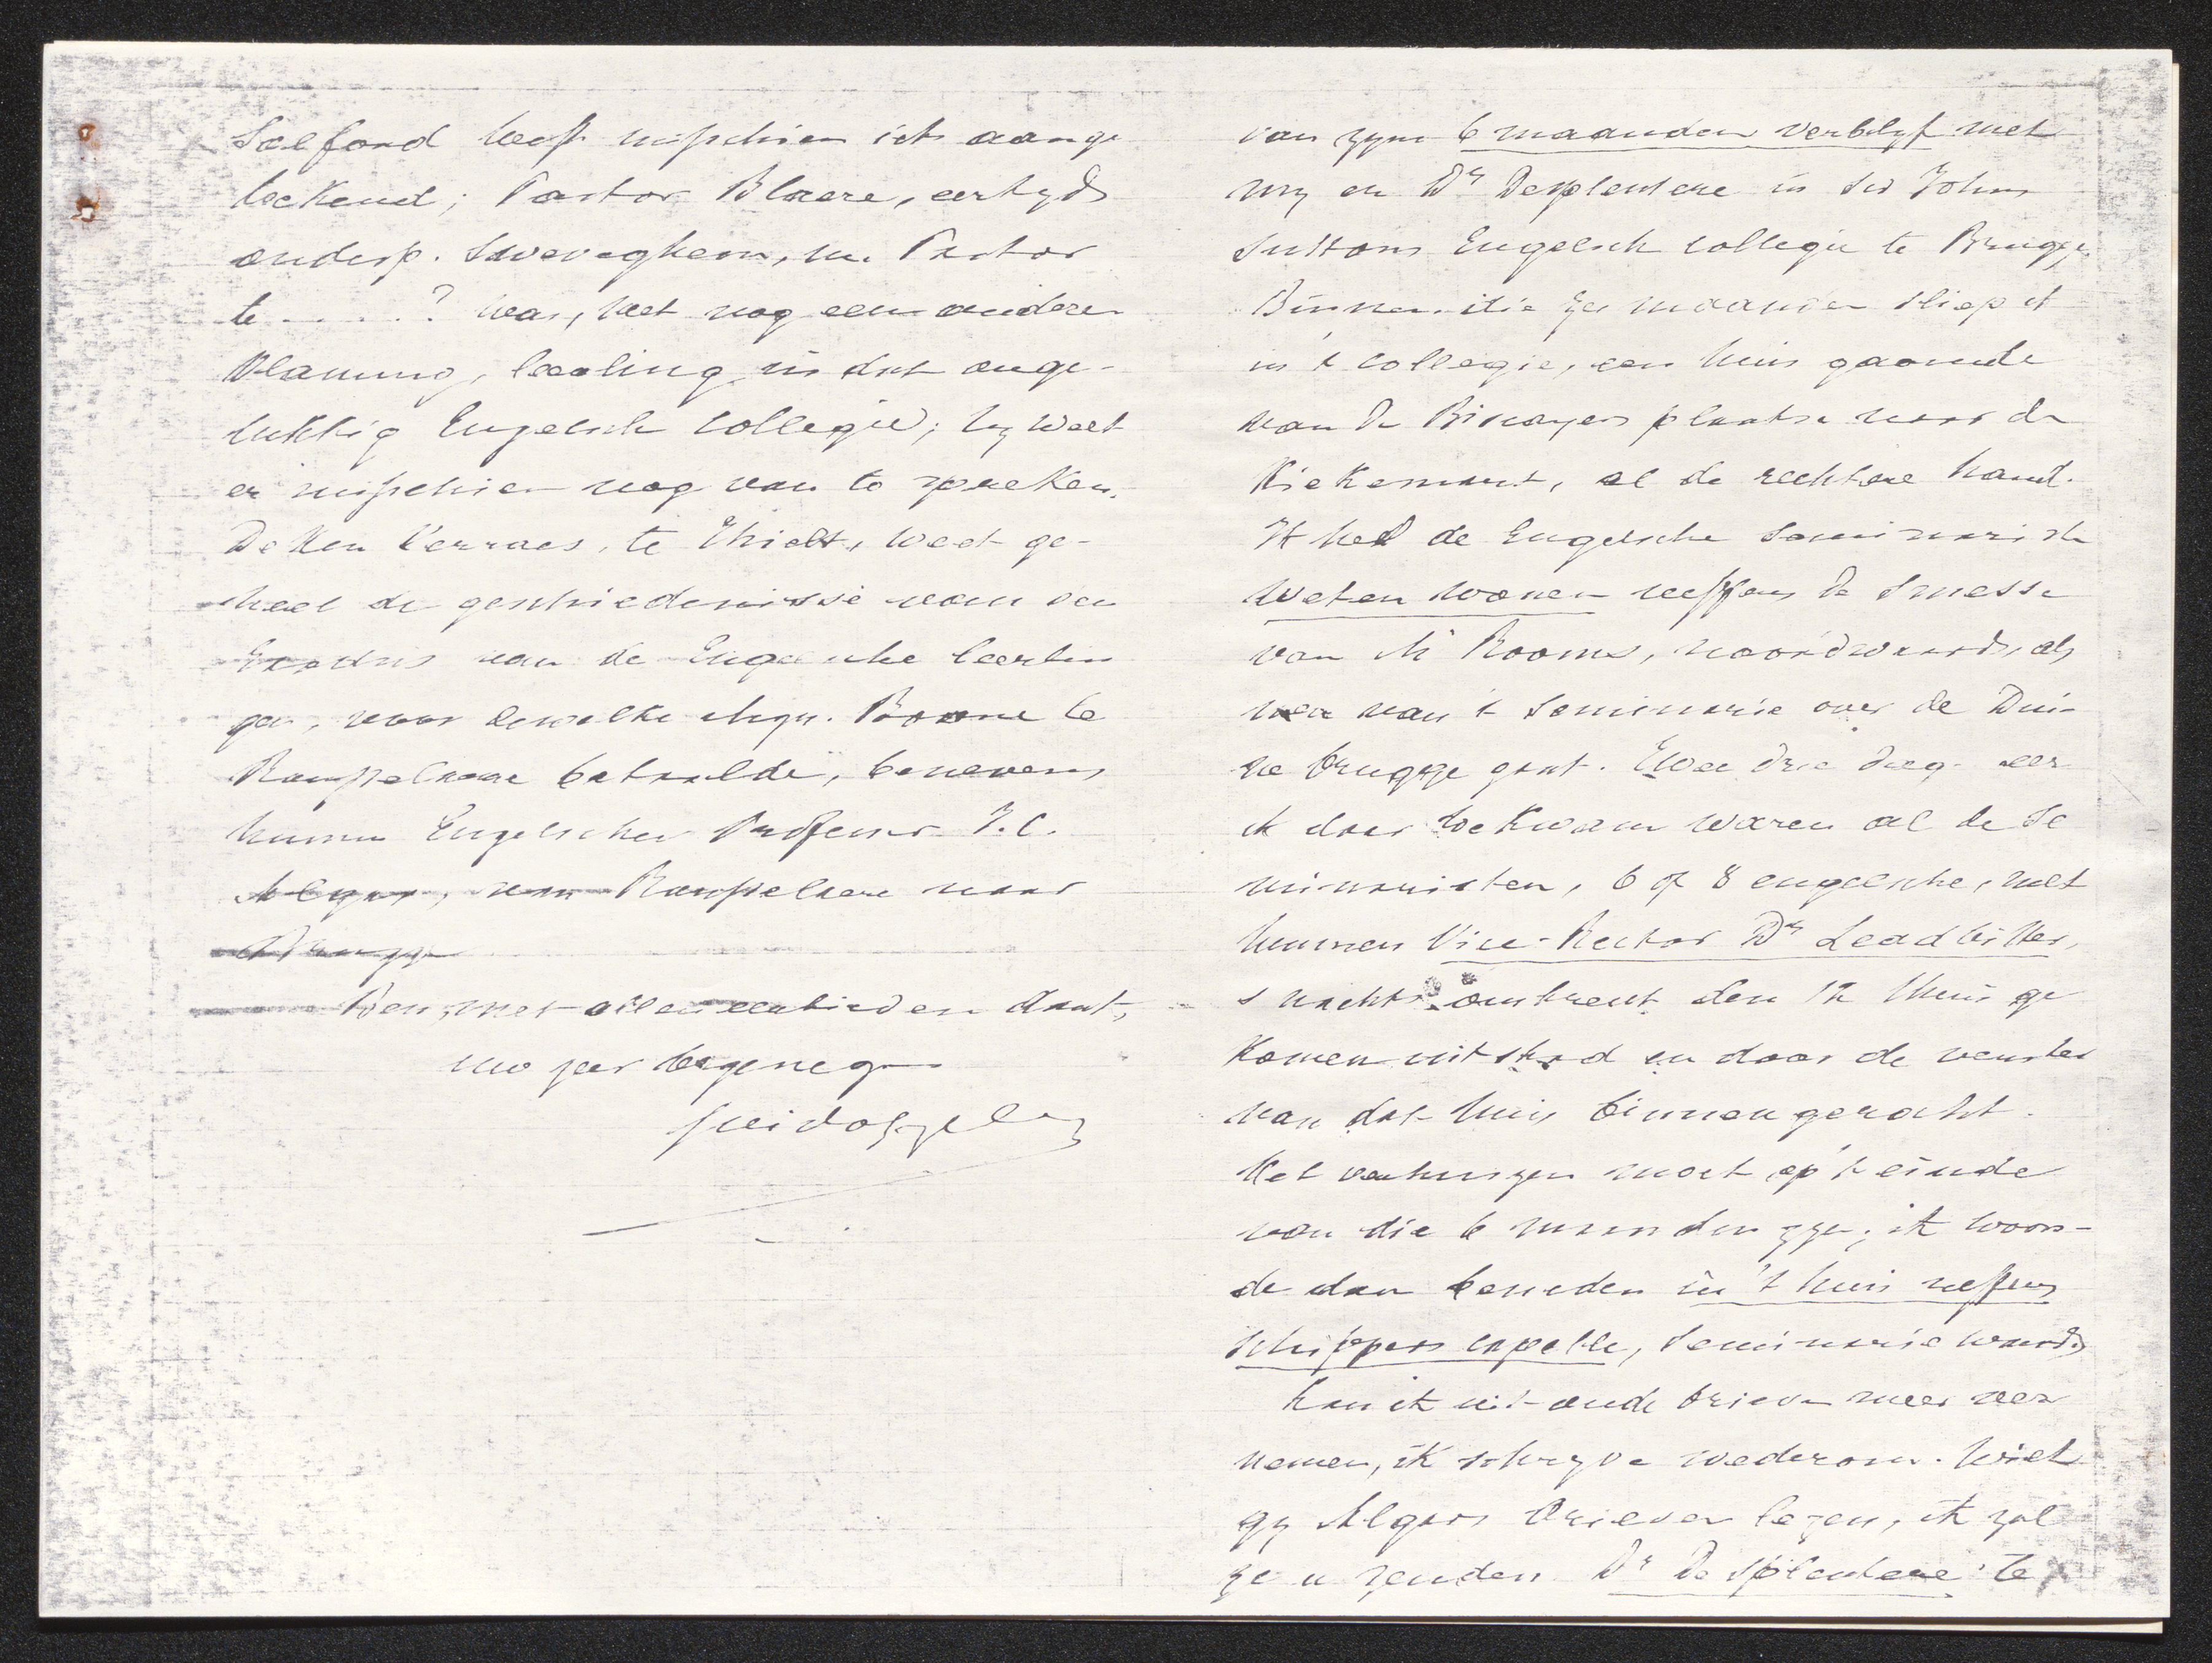 Salford heeft misschien iets aange
teekend; Pastor Blaere, eertyds
onderp. Sweveghem, nu Pastor
te ......? was, met nog een anderen
Vlaming, leerling in dat onge-
lukkig Engelsch collegie; hy weet
er misschien nog van te spreken.
Deken Verraes, te Thielt, weet ge-
heel de geschiedenisse van den
Exodus van de Engelsche leerlin
gen, voor dewelke Mgr. Boone te
Rousselaere betaalde, benevens
hunnen Engelschen Professor J.C.
Algar, van Rousselaere naar
Brugge
Ben, met allen eerbied en dank,
uw zeer toegenegen
Guido Gezelle
van zyne 6 maanden verblyf met
my en Dr Desplentere in Sir Johns
Suttons Engelsch collegie te Brugge.
Binnen die zes maanden sliep ik
in 't collegie, een huis gaande
van de Biscayers plaatse naar de
Kiekemarkt, al de rechtere hand.
Ik heb de Engelsche seminarie
weten wonen neffens de smesse
van Mr Rooms, noordwaards, als
men van 't Seminarie over de Dui-
ne brugge gaat. Twee drie dagen eer
ik daar toekwam waren al de Se
minaristen, 6 of 8 engelsche, met
hunnen Vice-Rector Dr Leadbitter,
s nachts omtrent den 12 thuis ge
komen uit stad en door de venster
van dat huis binnen geraakt.
Het verhuizen moet op 't einde
van die 6 maanden zyn; ik woon-
de dan beneden in 't huis neffens
schippers capelle, Seminarie waards
Kan ik uit oude brieven meer ver
nemen, ik schryve wederom. Wilt
gy Algars brieven lezen, ik zal
ze u zenden Dr Desplentere te